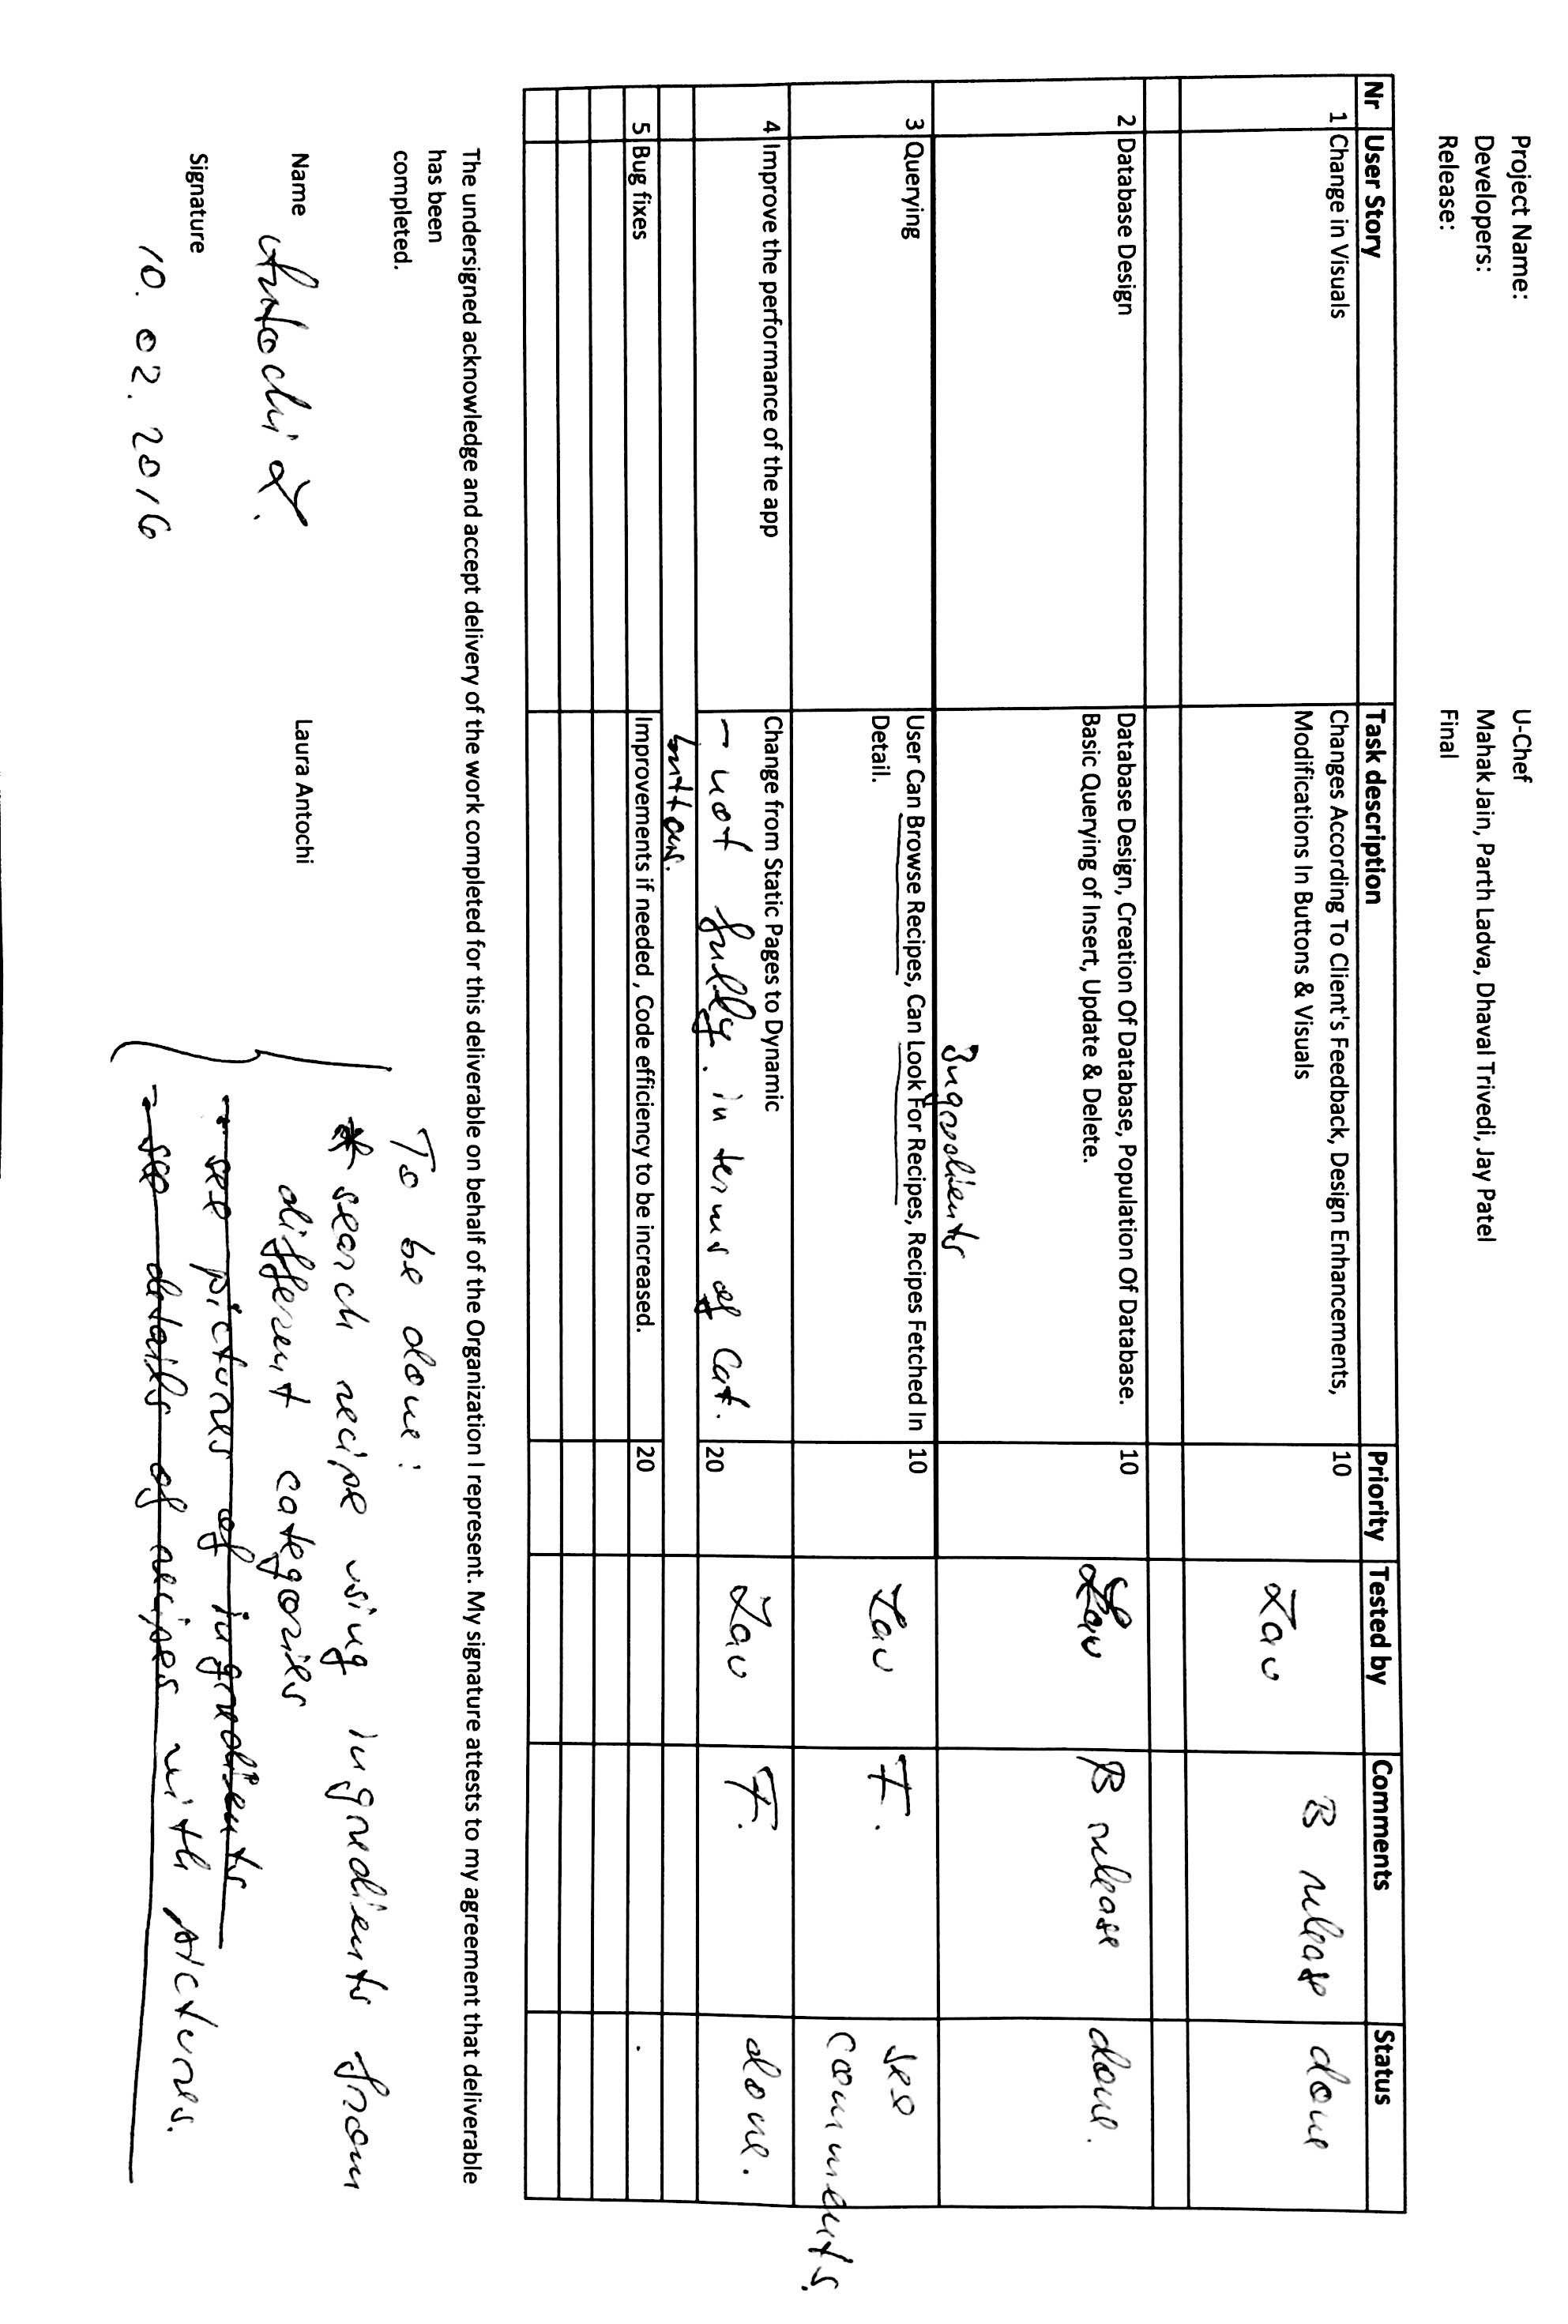 Project Name: U-Chef
Developers: Mahak Jain, Parth Ladva, Dhaval Trivedi, Jay Patel
Release: Final
Nr User Story Task description Priority Tested by Comments Status
1 Change in Visuals Changes According To Client's Feedback, Design Enhancements, 10 Lau B release done
Modifications In Buttons & Visuals
2 Database Design Database Design, Creation Of Database, Population Of Database. 10 Lau B release done.
Basic Querying of Insert, Update & Delete.
Ingredients
3 Querying User Can Browse Recipes, Can Look For Recipes, Recipes Fetched In 10 Lau F. see
Detail. comments.
4 Improve the performance of the app Change from Static Pages to Dynamic 20 Lau F. done.
- not fully. in terms of Cat.
buttons.
5 Bug fixes Improvements if needed , Code efficiency to be increased. 20
The undersigned acknowledge and accept delivery of the work completed for this deliverable on behalf of the Organization I represent. My signature attests to my agreement that deliverable
has been
completed.
To be done:
Name Laura Antochi
Antochi L.
* search recipe using ingredients from
different categories
- see pictures of ingredients
Signature
10. 02. 2016
- see details of recipes with pictures.